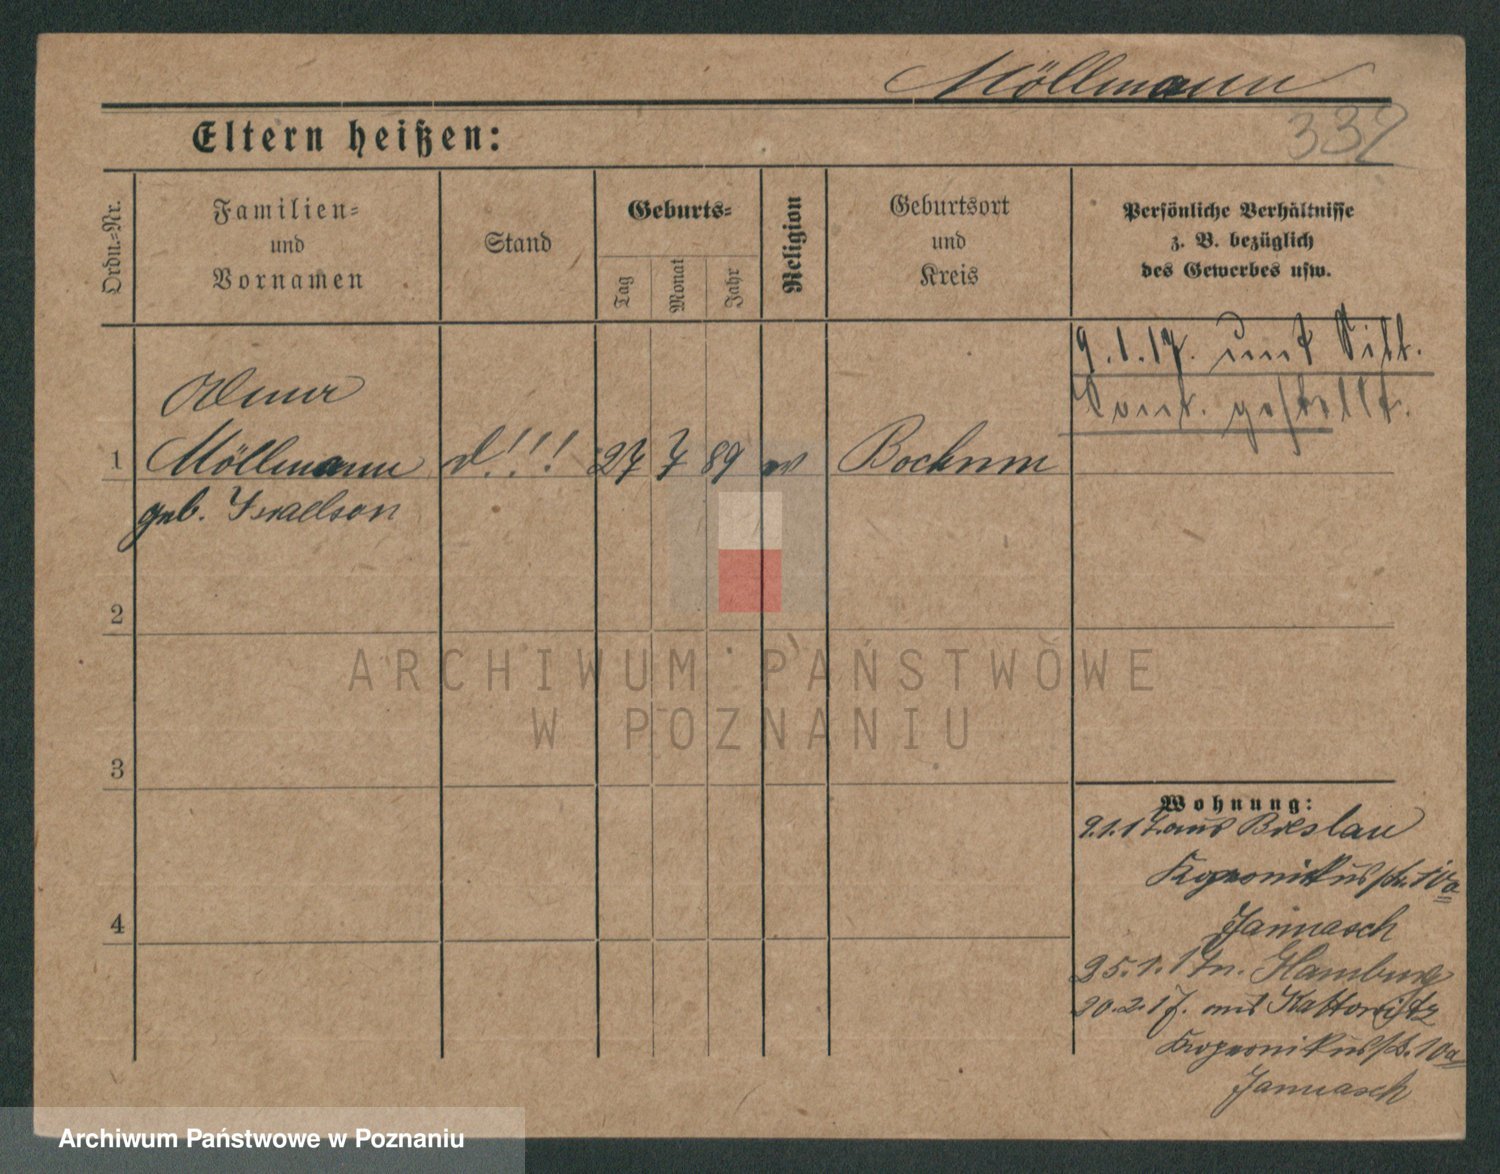 Möllmann
332
Eltern heißen:
Ordn.-Nr.
Familien-
und
Vornamen
Stand
Geburts-
Tag
Monat
Jahr
Religion
Geburtsort
und
Kreis
Persönliche Verhältnisse
z. B. bezüglich
des Gewerbes usw.
9.1.17. unt
gestellt.
1
Möllmann
27 7 89
Bochum
geb. Israelson
2
3
4
Wohnung:
9.1.17. aus Breslau
Kopernikusstr. 10a
Jannasch
25.1.17 n. Hamburg
20.2.17. aus Kattowitz
Kopernikusstr. 10a
Jannasch
ARCHIWUM PAŃSTWOWE
W POZNANIU
Archiwum Państwowe w Poznaniu